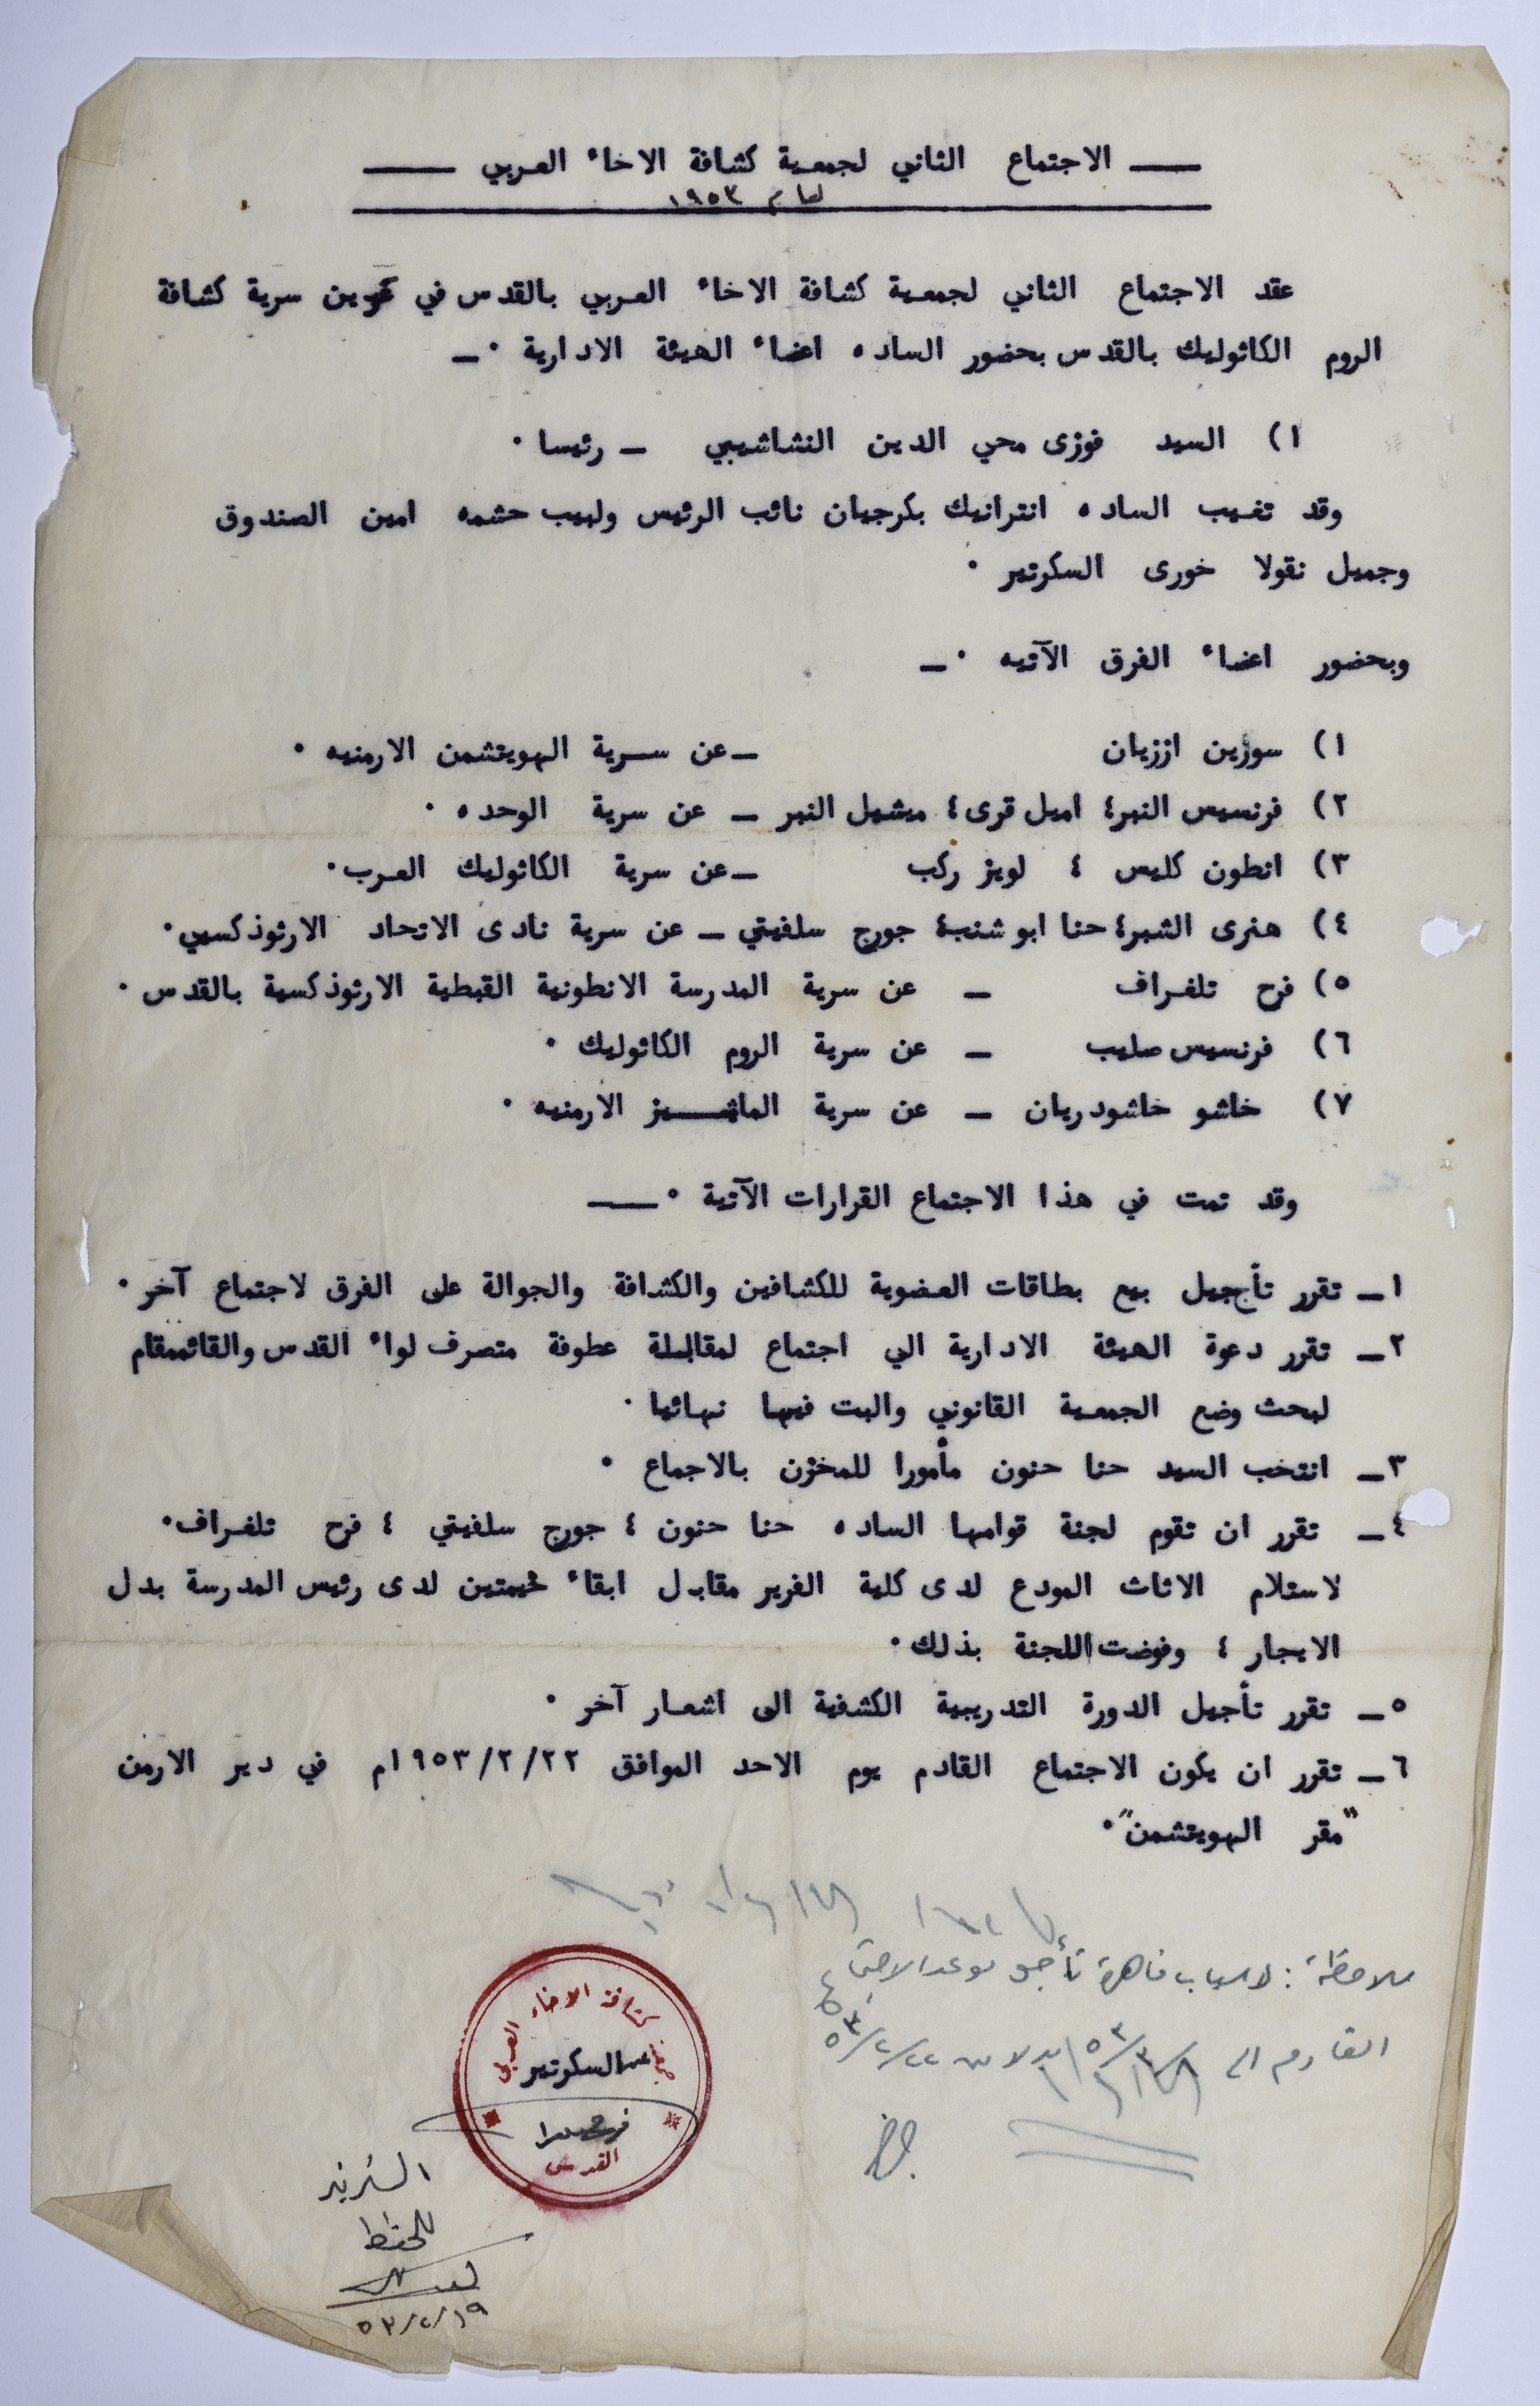 الاجتماع الثاني لجمعية كشافة الاخاء العربي
لعام ١٩٥٣
عقد الاجتماع الثاني لجمعية كشافة الاخاء العربي بالقدس في عرين سرية كشافة
الروم الكاثوليك بالقدس بحضور الساده اعضاء الهيئة الادارية ٠ـ
١) السيد فوزى محي الدين النشاشيبي ـ رئيسا ٠
وقد تغيب الساده انترانيك بكرجيان نائب الرئيس ولبيب حشمه امين الصندوق
وجميل نقولا خورى السكرتير ٠
وبحضور اعضاء الفرق الآتيه ٠ـ
١) سوزين اززيان ـ عن سرية الهويتشمن الارمنيه ٠
٢) فرنسيس النبر؛ اميل قرى؛ ميشيل النبر ـ عن سرية الوحده ٠
٣) انطون كليس ؛ لويز ركب ـ عن سرية الكاثوليك العرب٠
٤) هنرى الشبر؛ حنا ابو شنب؛ جورج سلفيتي ـ عن سرية نادى الاتحاد الارثوذكسي٠
٥) فرح تلغراف ـ عن سرية المدرسة الانطونية القبطية الارثوذكسية بالقدس ٠
٦) فرنسيس صليب ـ عن سرية الروم الكاثوليك ٠
٧) خاشو خاشودريان ـ عن سرية الارمنيه ٠
وقد تمت في هذا الاجتماع القرارات الآتية ٠ـ
١ـ تقرر تأجيل بيع بطاقات العضوية للكشافين والكشافة والجوالة على الفرق لاجتماع آخر ٠
٢ـ تقرر دعوة الهيئة الادارية الي اجتماع لمقابلة عطوفة متصرف لواء القدس والقائممقام
لبحث وضع الجمعية القانوني والبت فيها نهائيا ٠
٣ـ انتخب السيد حنا حنون مأمورا للمخزن بالاجماع ٠
٤ـ تقرر ان تقوم لجنة قوامها الساده حنا حنون ؛ جورج سلفيتي ؛ فرح تلغراف٠
لاستلام الاثاث المودع لدى كلية الفرير مقابل ابقاء خيمتين لدى رئيس المدرسة بدل
الايجار ؛ وفوضت اللجنة بذلك٠
٥ـ تقرر تأجيل الدورة التدريبية الكشفية الى اشعار آخر ٠
٦ـ تقرر ان يكون الاجتماع القادم يوم الاحد الموافق ١٩٥٣/٢/٢٢م في دير الارمن
"مقر الهويتشمن"٠
ملاحظة : لاسباب قاهرة تأجل موعد الاجتماع
القادم الى بدلا من ٥٣/٢/٢٢
كشافة الاخاء العربي
عن السكرتير
القدس
للحفظ
٥٣/٢/١٩